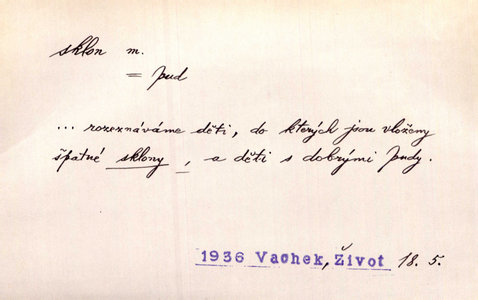 sklon m.
= pud
... rozeznáváme děti, do kterých jsou vloženy
špatné sklony, a děti s dobrými pudy.
1936 Vachek, Život 18. 5.